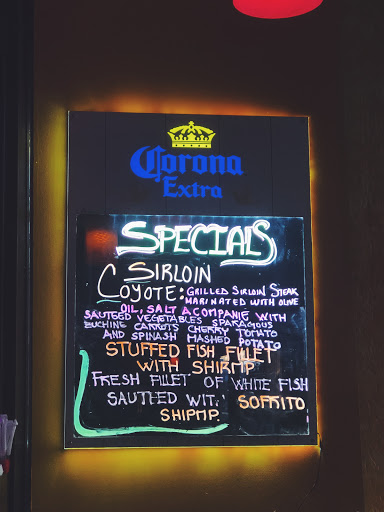 Corona
Extra
SPECIALS
SIRLOIN
COYOTE: GRILLED SIRLOIN STEAK
MARINATED WITH OLIVE
OIL, SALT ACOMPANIE WITH
SAUTEED VEGETABLES SPARAGIOUS
ZUCHINE CARROTS CHERRY TOMATO
AND SPINASH MASHED POTATO
STUFFED FISH FILLET
WITH SHIRMP
FRESH FILLET OF WHITE FISH
SAUTEED WIT. SOFRITO
SHIPMP